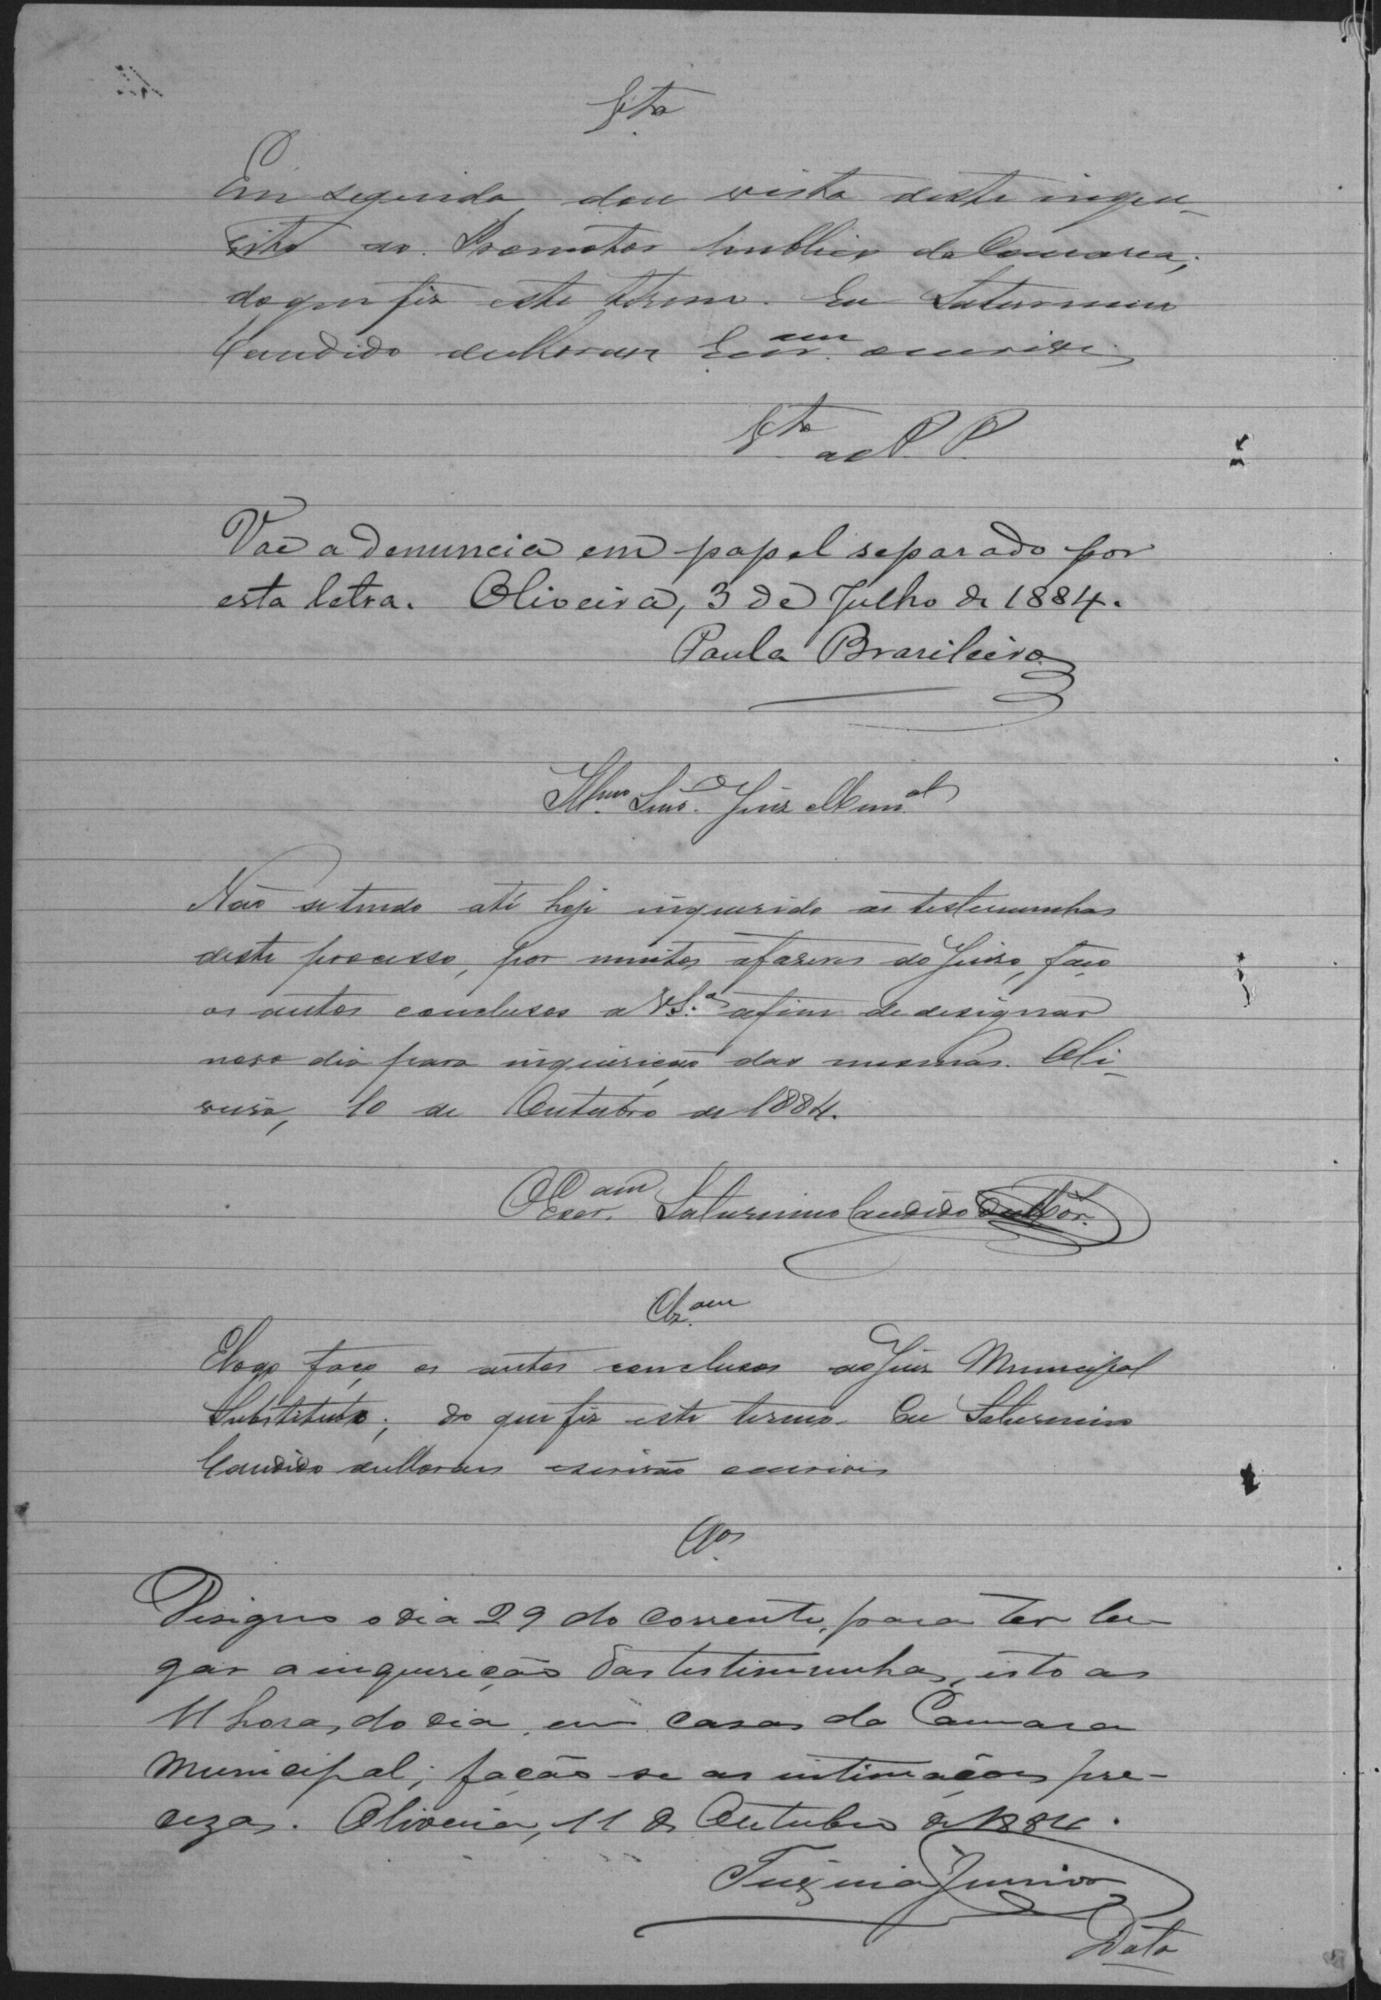 Vta
Em seguida dou vista deste inque-
rito ao Promotor Publico da Comarca;
do que fiz este termo. Eu Saturnino
Candido de Moraes Escr.am escrivi
Vta ao P. P.
Vae a denuncia em papel separado por
esta letra. Oliveira, 3 de Julho de 1884.
Paula Brasileiro
Illmo Snr. Dr Juiz Munal
Não se tendo até hoje inquirido as testemunhas
deste processo, por muitos afazeres do Juizo, faço
os autos conclusos a VS.a afim de designar
novo dia para inquirição das mesmas. Oli-
veira, 10 de Outubro de 1884.
O Escr.am Saturnino Candido de Mor.
Clz.am
E logo faço os autos conclusos ao Juiz Municipal
Substituto; do que fiz este termo. Eu Saturnino
Candido de Moraes escrivão escrivi
Clos
Designo o dia 29 do corrente, para ter lu-
gar a inquirição das testimunhas, isto as
11 horas do dia, em casas da Camara
Municipal; fação-se as intimações pre-
cizas. Oliveira, 11 de Outubro de 1884.
Junior
Data